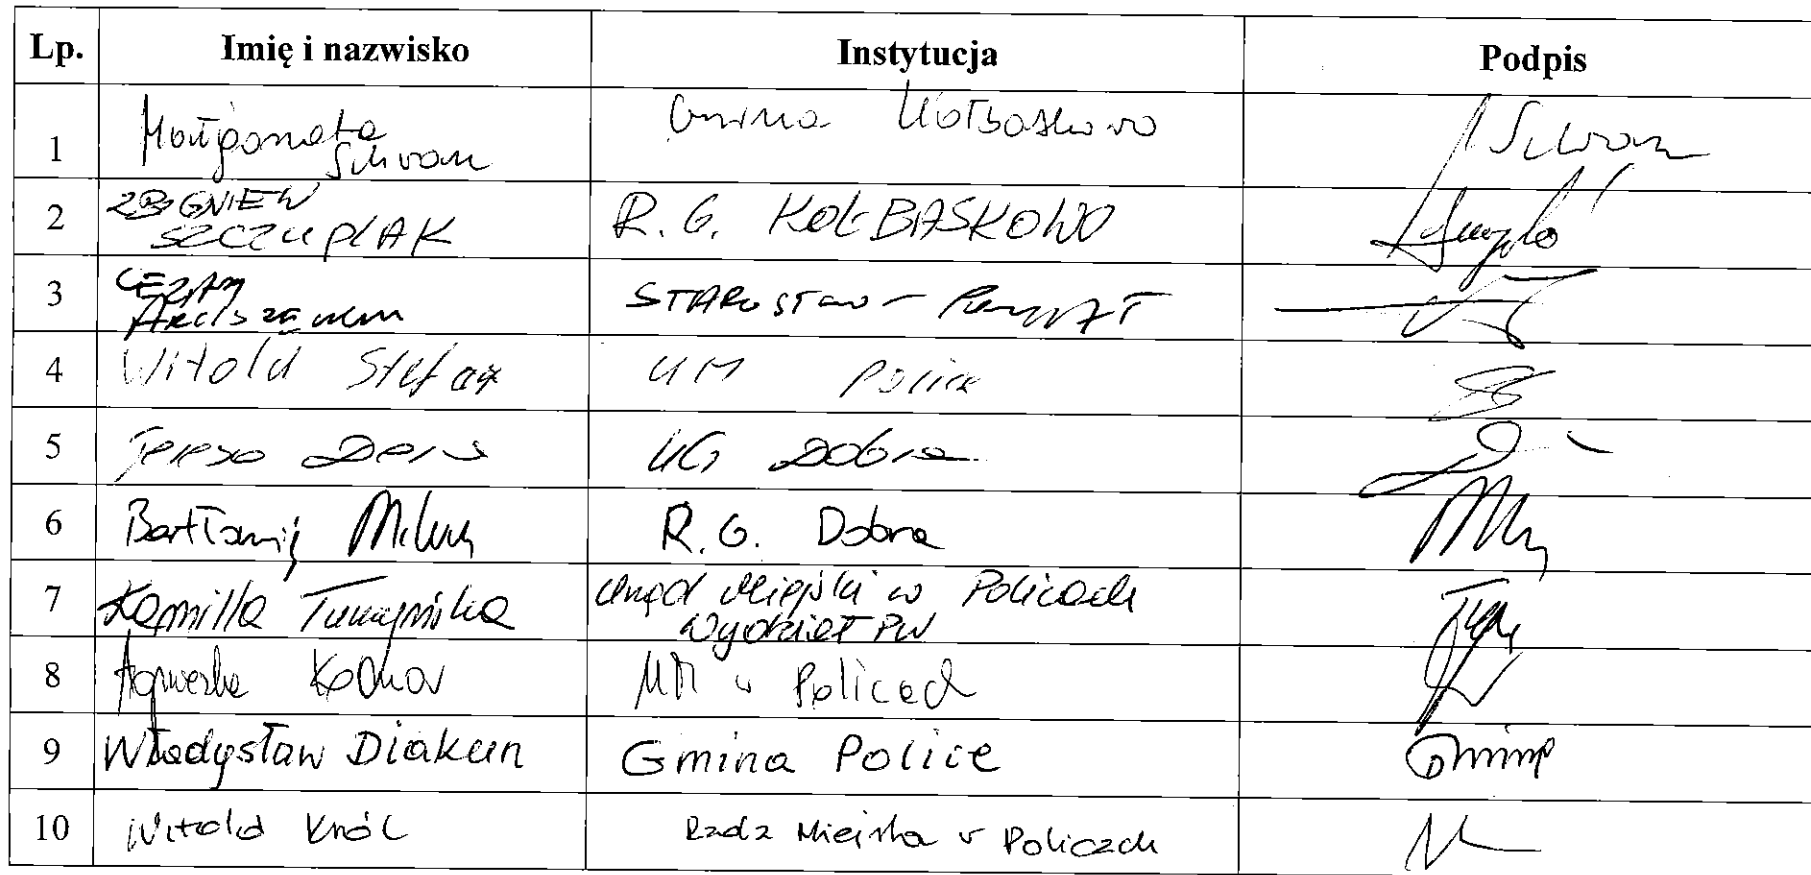 Lp. Imię i nazwisko Instytucja Podpis
1 Małgorzata Schwarz Gmina Kołbaskowo
2 ZBIGNIEW SZCZUPLAK R. G. KOŁBASKOWO
3 CEZARY STAROSTWO - POWIAT
4 Witold Stefan UM Police
5 Teresa Dera UG Dobra
6 Bartłomiej Miluch R. G. Dobra
7 Kamilla Urząd Miejski w Policach Wydział PW
8 Agnieszka UM w Policach
9 Władysław Diakun Gmina Police
10 Witold Król Rada Miejska w Policach